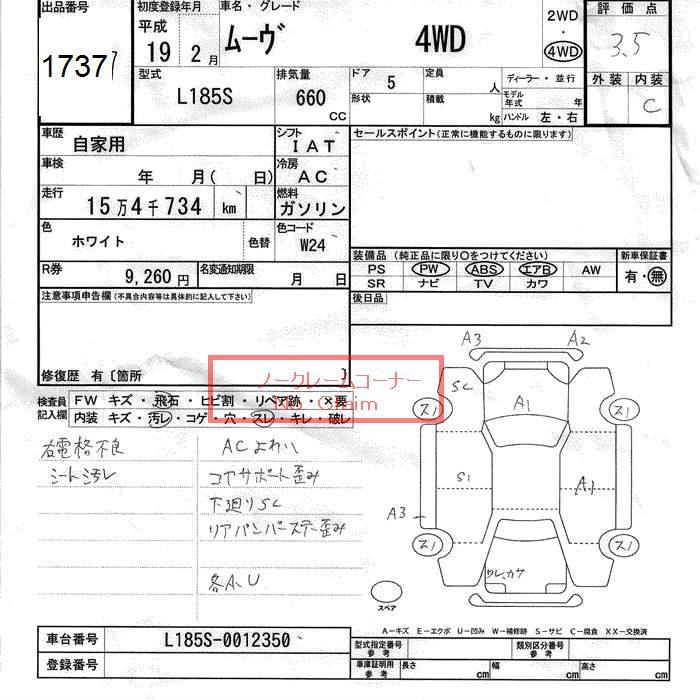 出品番号
17377
初度登録年月
平成
19年2月
車名・グレード
ムーヴ 4WD
2WD
・
4WD
評価点
3.5
外装 内装
C
型式
L185S
排気量
660
CC
ドア 5
定員 人
形状
積載 kg
ディーラー・並行
モデル年式 年
ハンドル 左・右
車歴 自家用
シフト IAT
車検 年 月( 日)
冷房 AC
走行 15万4千734 km
燃料 ガソリン
色 ホワイト 色替
色コード W24
R券 9,260円
名変通知期限 月 日
セールスポイント(正常に機能するものに限ります)
装備品(純正品に限り○をつけてください)
PS PW ABS エアB AW
SR ナビ TV カワ
新車保証書
有・無
後日品
注意事項申告欄(不具合内容等は具体的に記入して下さい)
修復歴 有〔箇所 〕
ノークレームコーナー
No Claim
検査員記入欄
FW キズ・飛石・ヒビ割・リペア跡・×要
内装 キズ・汚レ・コゲ・穴・スレ・キレ・破レ
右電格不良
シート汚レ
ACよわい
コアサポート歪み
下廻りSC
リアバンパーステー歪み
各A、U
A3 A2
SC
A1
ス1 ス1
S1 A1
A3
ス1 ス1
ワレ、カケ
スペア
A―キズ E―エクボ U―凹み W―補修跡 S―サビ C―腐食 XX―交換済
車台番号 L185S-0012350
登録番号
型式指定番号 参考
類別区分番号 参考
車庫証明用 参考
長さ cm 幅 cm 高さ cm